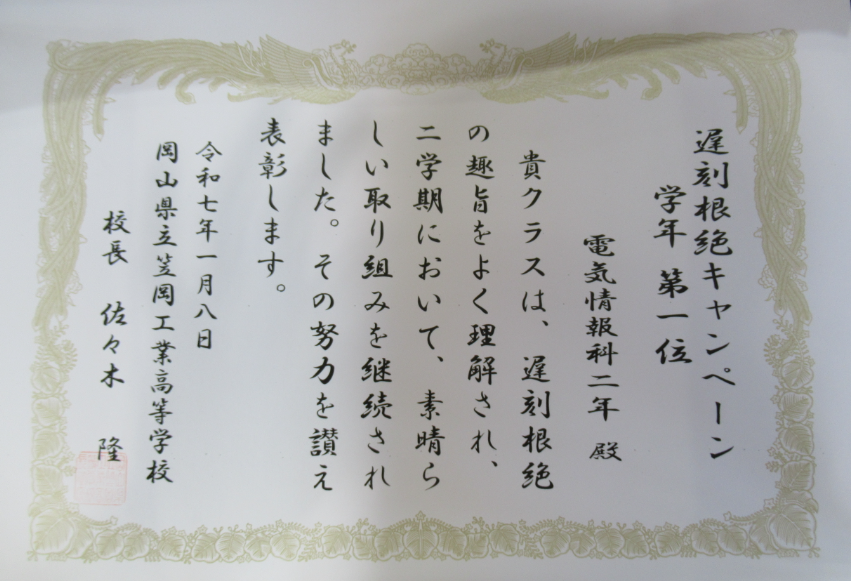 遅刻根絶キャンペーン
学年 第一位
電気情報科二年 殿
貴クラスは、遅刻根絶
の趣旨をよく理解され、
二学期において、素晴ら
しい取り組みを継続され
ました。その努力を讃え
表彰します。
令和七年一月八日
岡山県立笠岡工業高等学校
校長 佐々木 隆